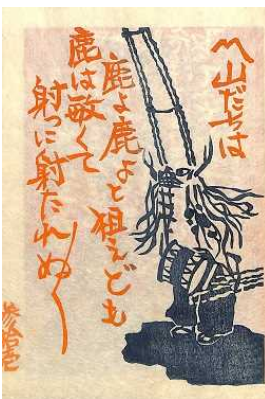 〽山だちは
鹿よ鹿よと狙えども
鹿は敏くて
射つに射たれぬ〱
参拾壱